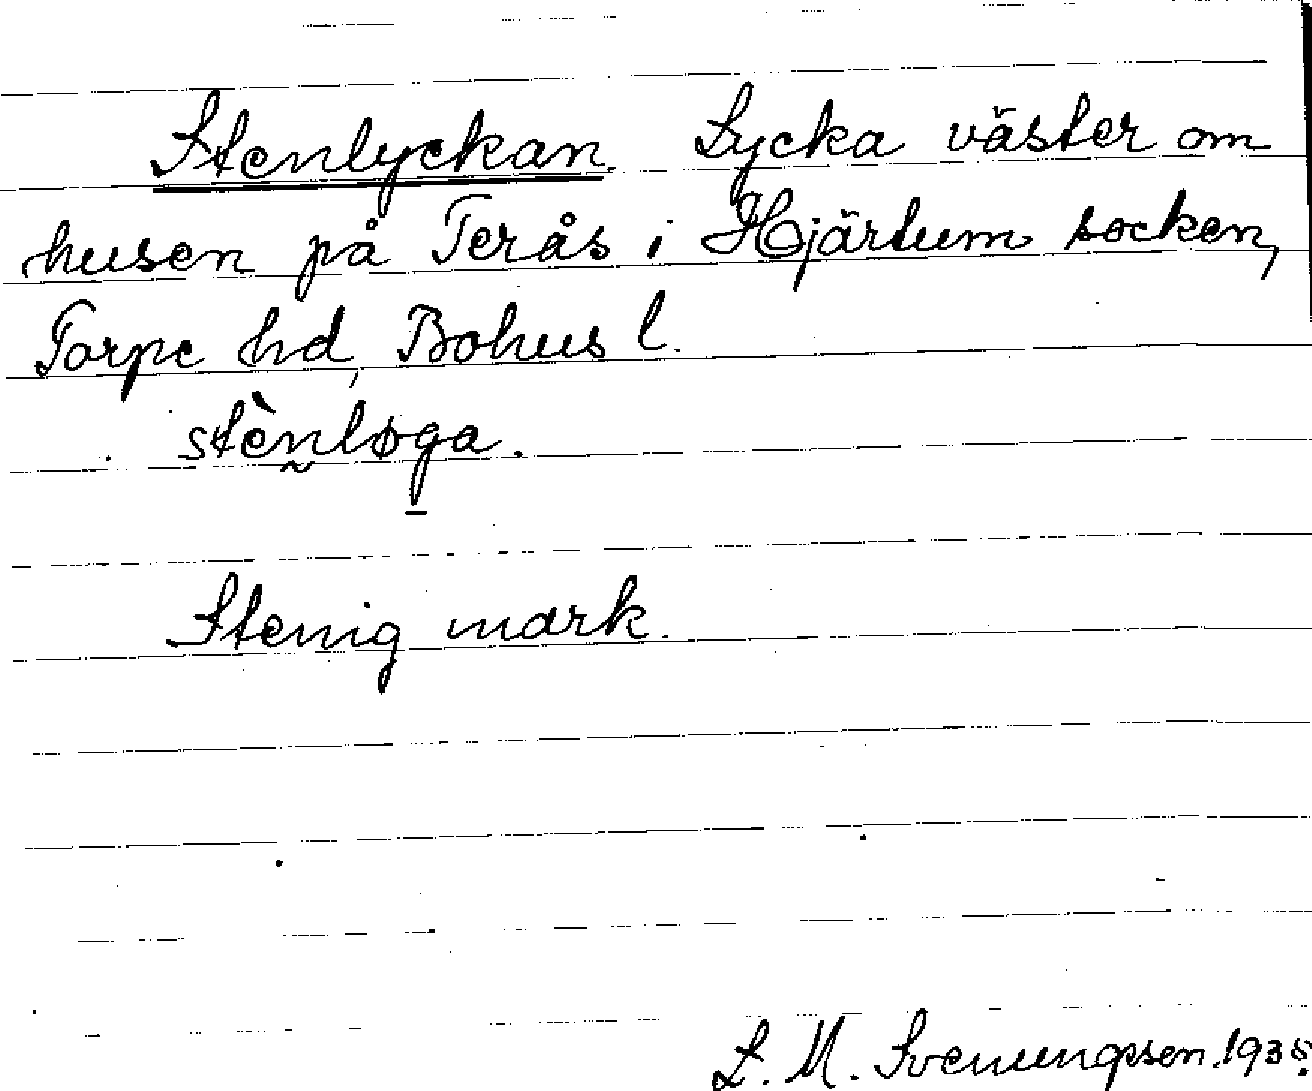 Stenlyckan. Lycka väster om
husen på Terås i Hjärtum socken,
Torpe hd, Bohus l.
stènløga.
Stenig mark.
L. M. Svenungsson. 1935.